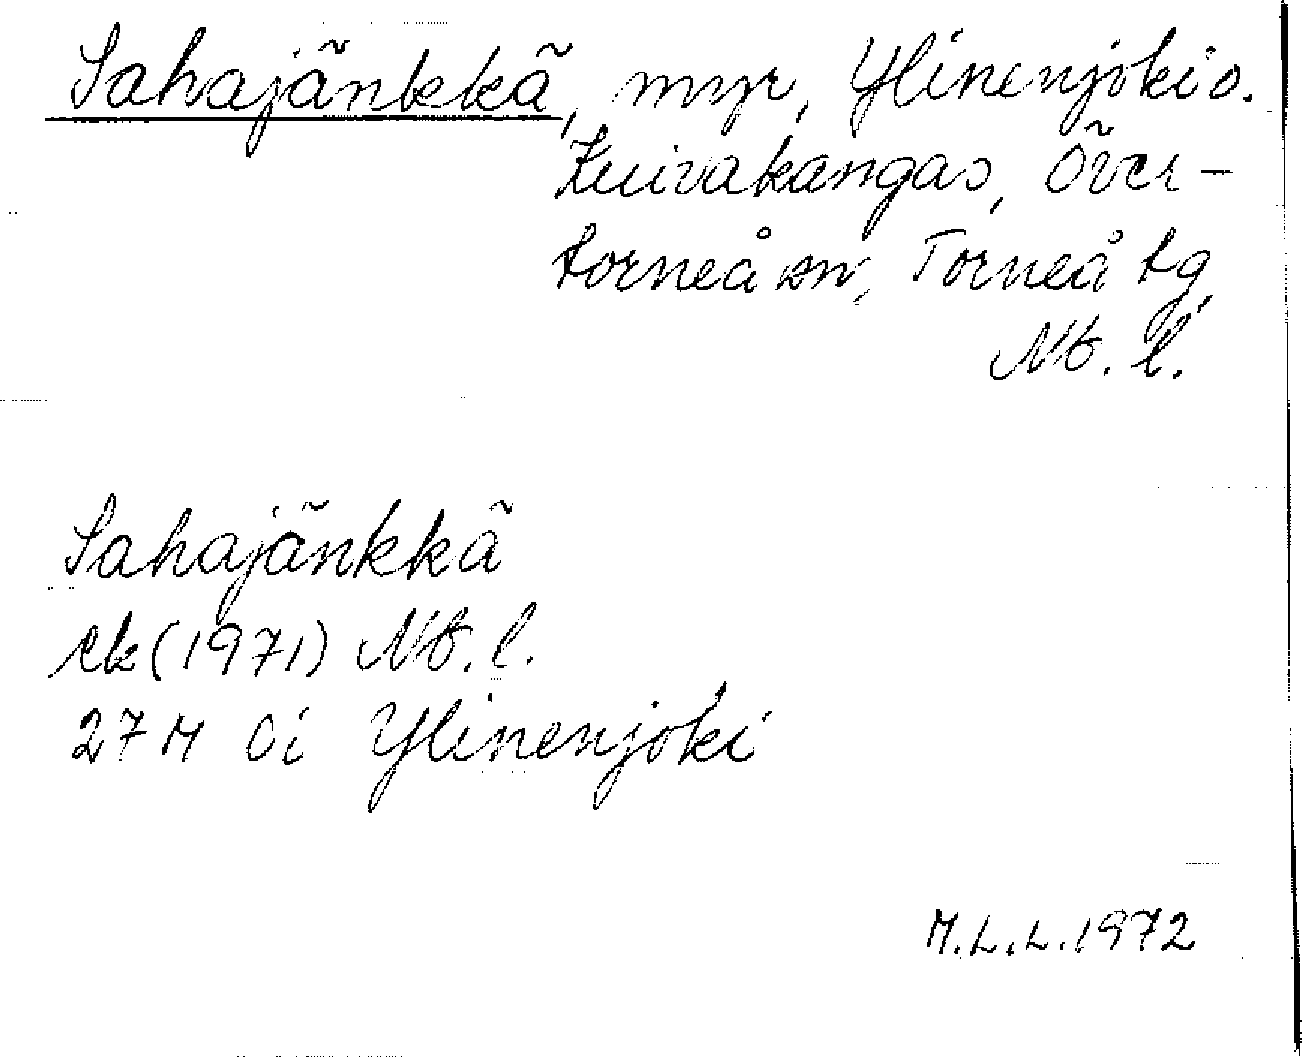 Sahajänkkä, myr, Ylinenjoki o.
Kuivakangas, Över-
torneå sn, Torneå tg,
Nb. l.
Sahajänkkä
ek (1971) Nb. l.
27 M 0i Ylinenjoki
M.L.L. 1972